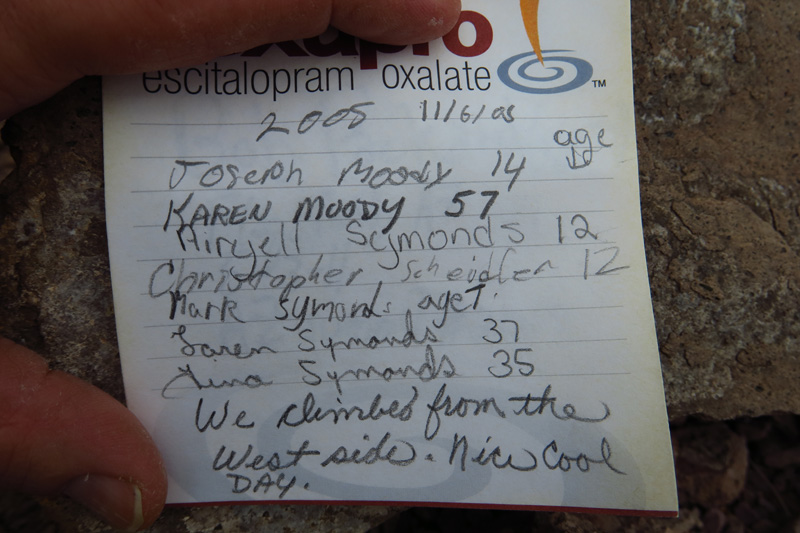 xapro
escitalopram oxalate ™
2005 11/6/05
age
Joseph Moody 14
KAREN MOODY 57
Airyell Symonds 12
Christopher Scheidler 12
Mark Symonds age 7.
Loren Symonds 37
Tina Symonds 35
We climbed from the
West side. Nice Cool
DAY.